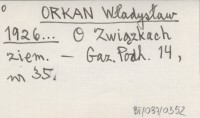 ORKAN Władysław
1926... O Związkach
ziem. — Gaz. Podh. 14,
nr 35.
BJ/037/0352